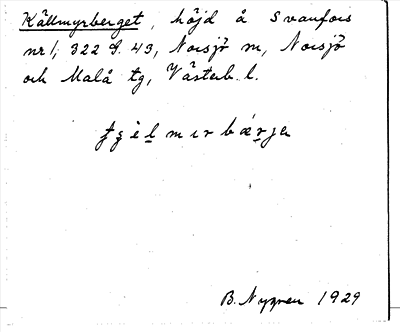 Källmyrberget, höjd å Svanfors
nr 1, 322 S. 43, Norsjö sn, Norsjö
och Malå tg, Västerb. l.
B. Nygren 1929